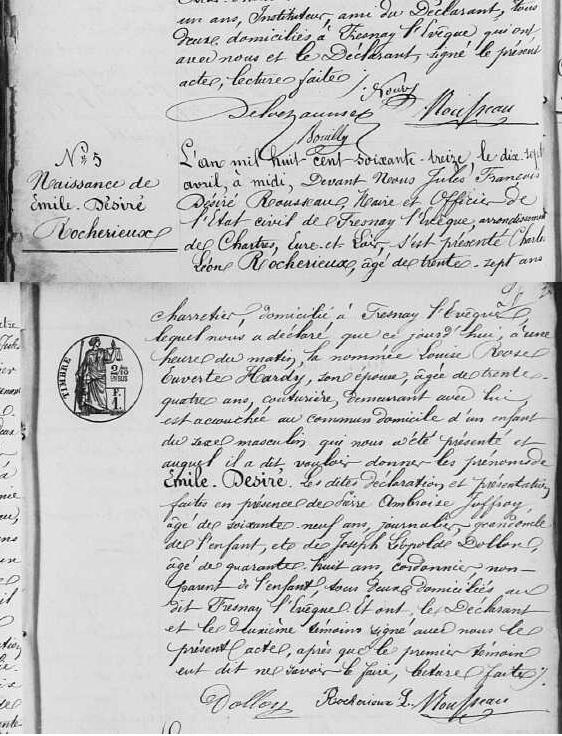 un ans, Instituteur, ami du Déclarant, tous
deux domiciliés à Fresnay l'Evêque qui ont,
avec nous et le Déclarant, signé le présent
acte, lecture faite
Rousseau
N° 5
Naissance de
Emile-Désiré
Rocherieux
L'an mil huit-cent-soixante-treize, le dix-sept
avril, à midi, Devant Nous Jules François
Désiré Rousseau, Maire et Officier de
l'Etat civil de Fresnay l'Evêque, arrondissement
de Chartres, Eure-et-Loir, s'est présenté Charles
Léon Rocherieux, âgé de trente-sept ans
charretier, domicilié à Fresnay l'Evêque
lequel nous a déclaré que ce jourd'hui, à une
heure du matin, la nommée Louise Rose
Euverte Hardy, son épouse, âgée de trente-
quatre ans, couturière, demeurant avec lui,
est accouchée au commun domicile d'un enfant
du sexe masculin qui nous a été présenté et
auquel il a dit vouloir donner les prénoms de
Emile-Désiré. Les dites déclaration et présentation
faites en présence de Pierre Ambroise Juffroy,
âgé de soixante-neuf ans, journalier, grand oncle
de l'enfant, et de Joseph Léopold Dollon,
âgé de quarante-huit ans, cordonnier non-
parent de l'enfant, tous deux domiciliés au
dit Fresnay l'Evêque. Et ont, le Déclarant
et le deuxième témoins signé avec nous le
présent acte, après que le premier témoin
eut dit ne savoir le faire, lecture faite
Dollon Rocherieux L. Rousseau
TIMBRE